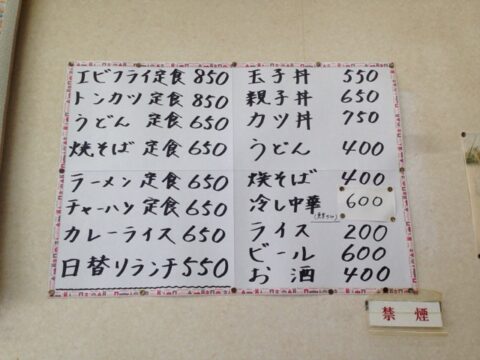 エビフライ定食 850
トンカツ定食 850
うどん 定食 650
焼そば 定食 650
ラーメン定食 650
チャーハン定食 650
カレーライス 650
日替りランチ 550
玉子丼 550
親子丼 650
カツ丼 750
うどん 400
焼そば 400
冷し中華 600
ライス 200
ビール 600
お酒 400
禁煙